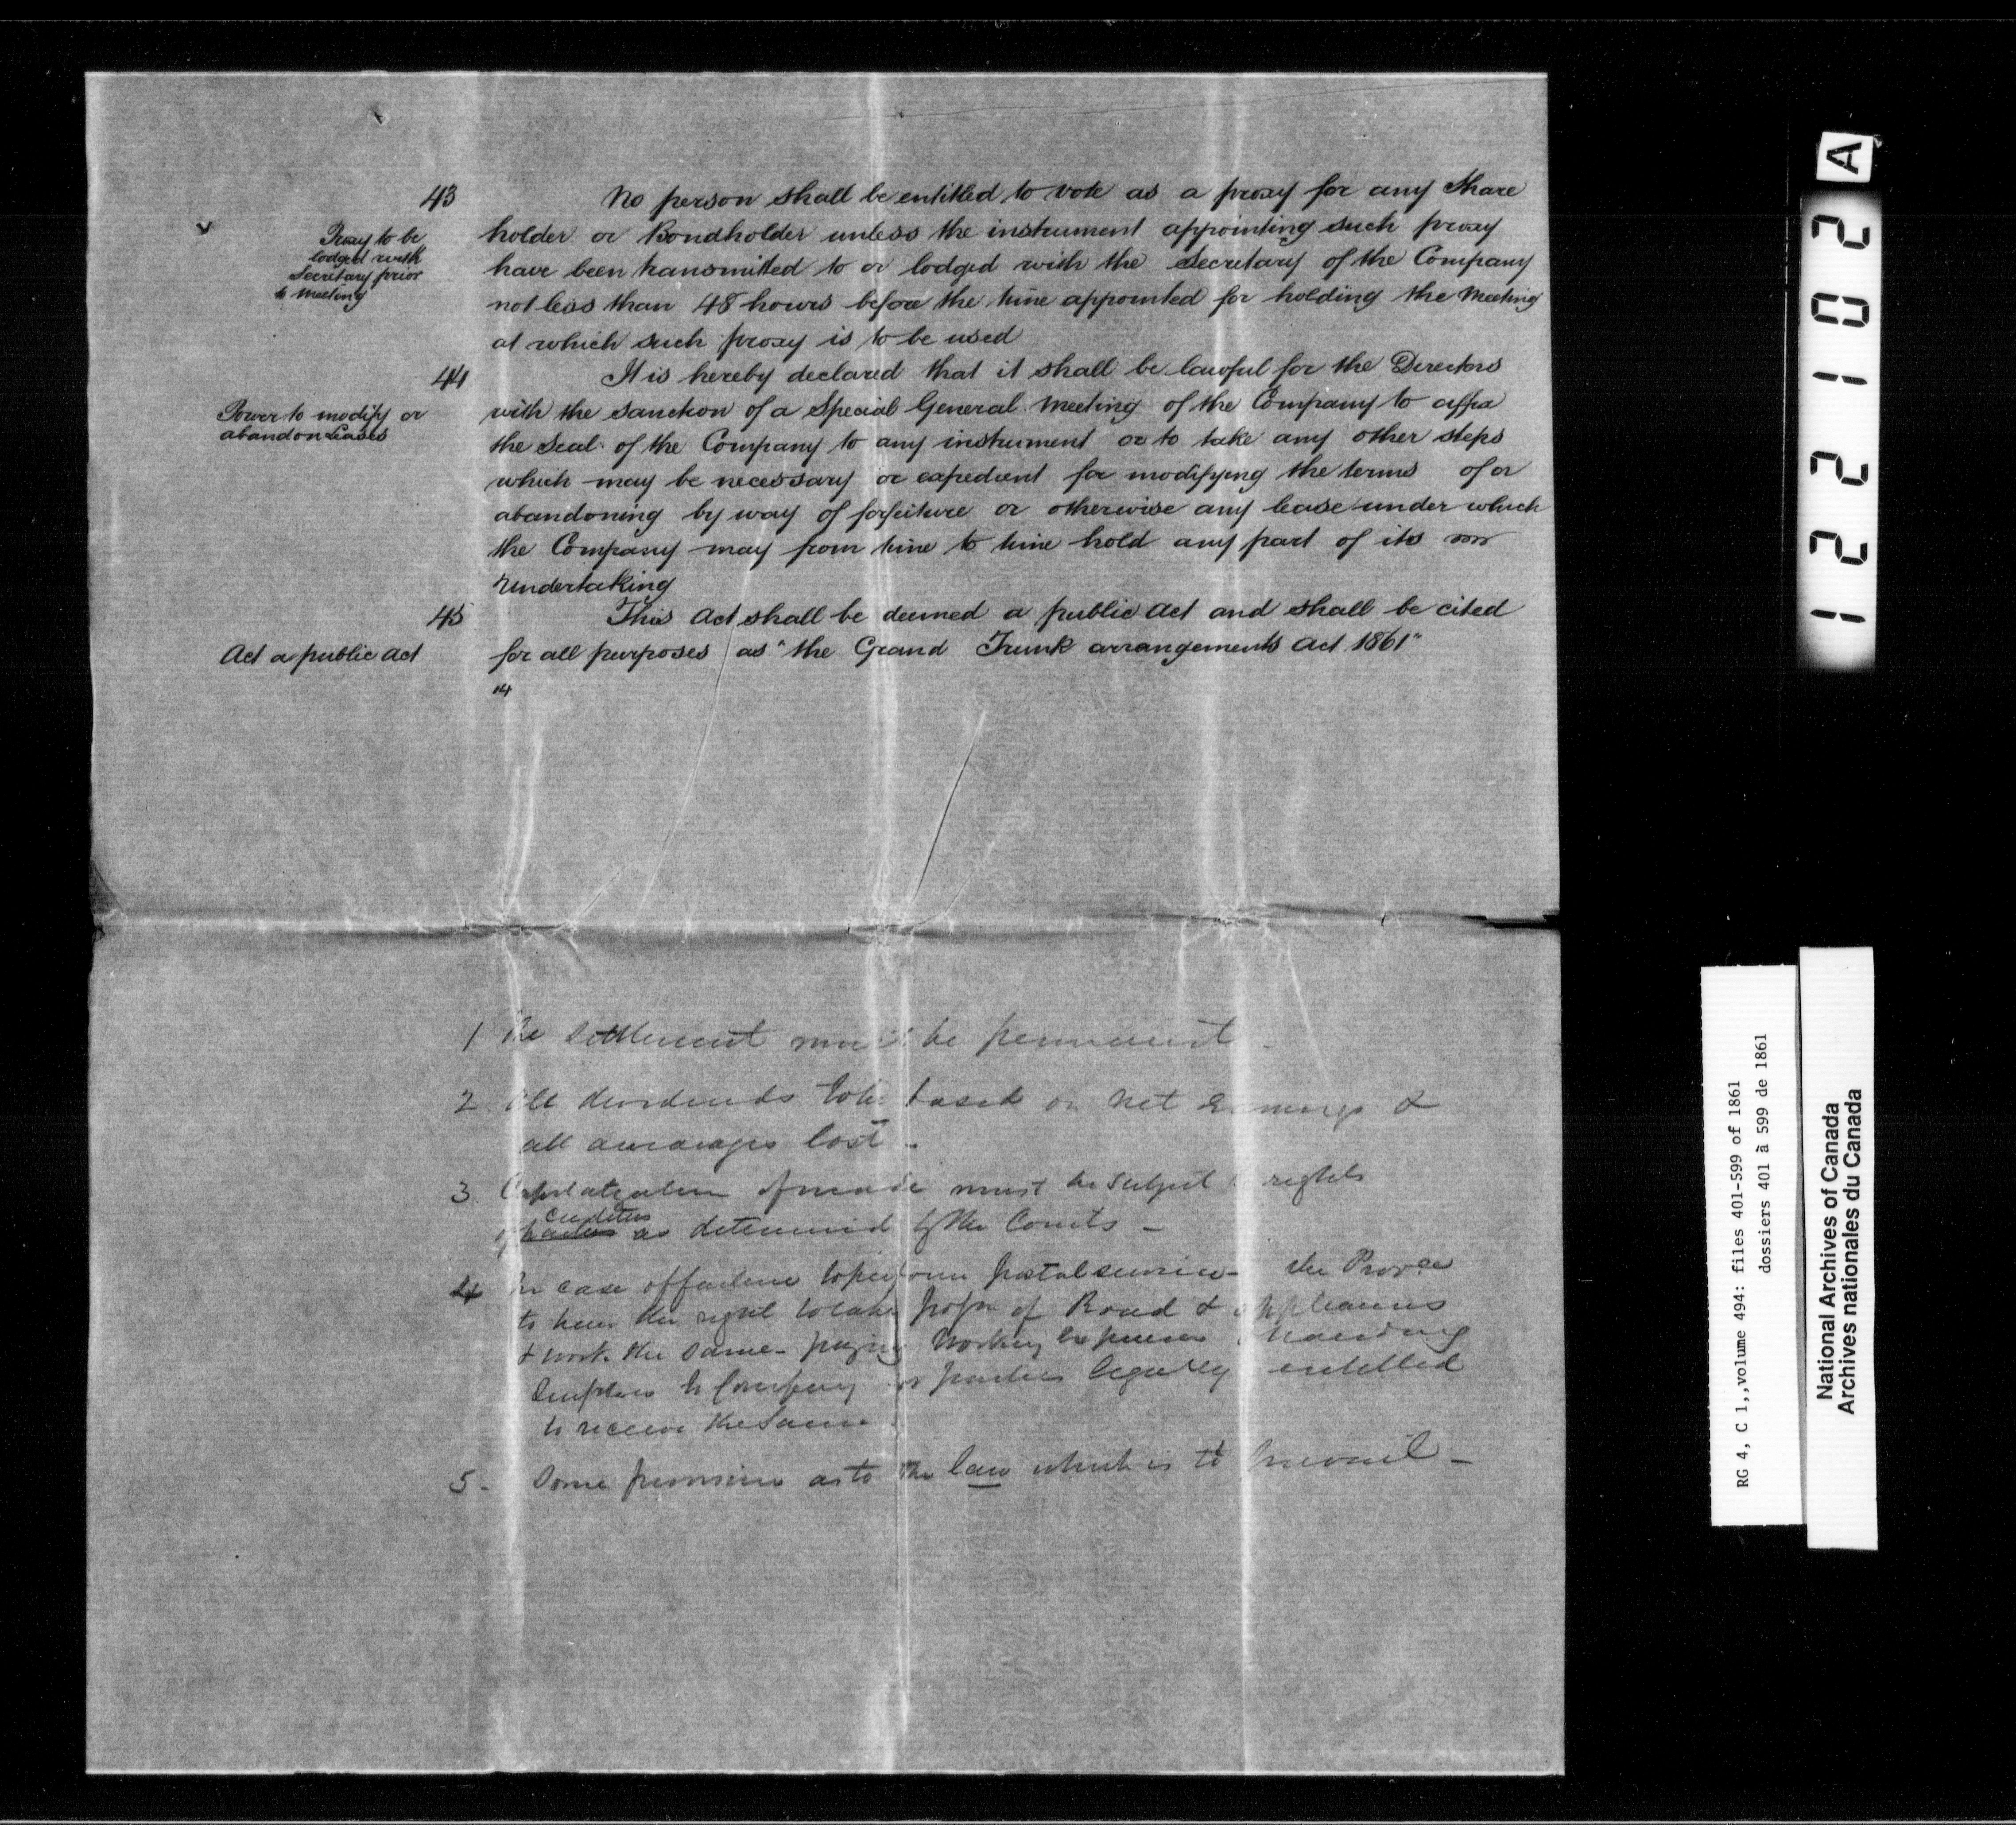 43
No person shall be entitled to vote as a proxy for any Share
Proxy to be
lodged with
Secretary prior
to Meeting
holder or Bondholder unless the instrument appointing such proxy
have been transmitted to or lodged with the Secretary of the Company
not less than 48 hours before the time appointed for holding the Meeting
at which such proxy is to be used
44
It is hereby declared that it shall be lawful for the Directors
Power to modify or
abandon Leases
with the sanction of a Special General Meeting of the Company to affix
the Seal of the Company to any instrument or to take any other steps
which may be necessary or expedient for modifying the terms of or
abandoning by way of forfeiture or otherwise any lease under which
the Company may from time to time hold any part of its
Undertaking
45
This Act shall be deemed a public Act and shall be cited
Act a public Act
for all purposes as "the Grand Trunk arrangements Act 1861"
1 The Settlement must be permanent -
2 All dividends to be based on net earnings &
all arrearages lost -
3. Capitalization if made must be subject to rights
creditors
of parties as determined by the Courts -
4 In case of failure to perform postal service - the Provce
to have the right to take possn of Road & appliances
& work the same - paying working expenses & handing
Surplus to Company or parties legally entitled
to receive the Same
5 - Some provision as to the law which is to prevail -
A
122102
RG 4, C 1,,volume 494: files 401-599 of 1861
dossiers 401 à 599 de 1861
National Archives of Canada
Archives nationales du Canada